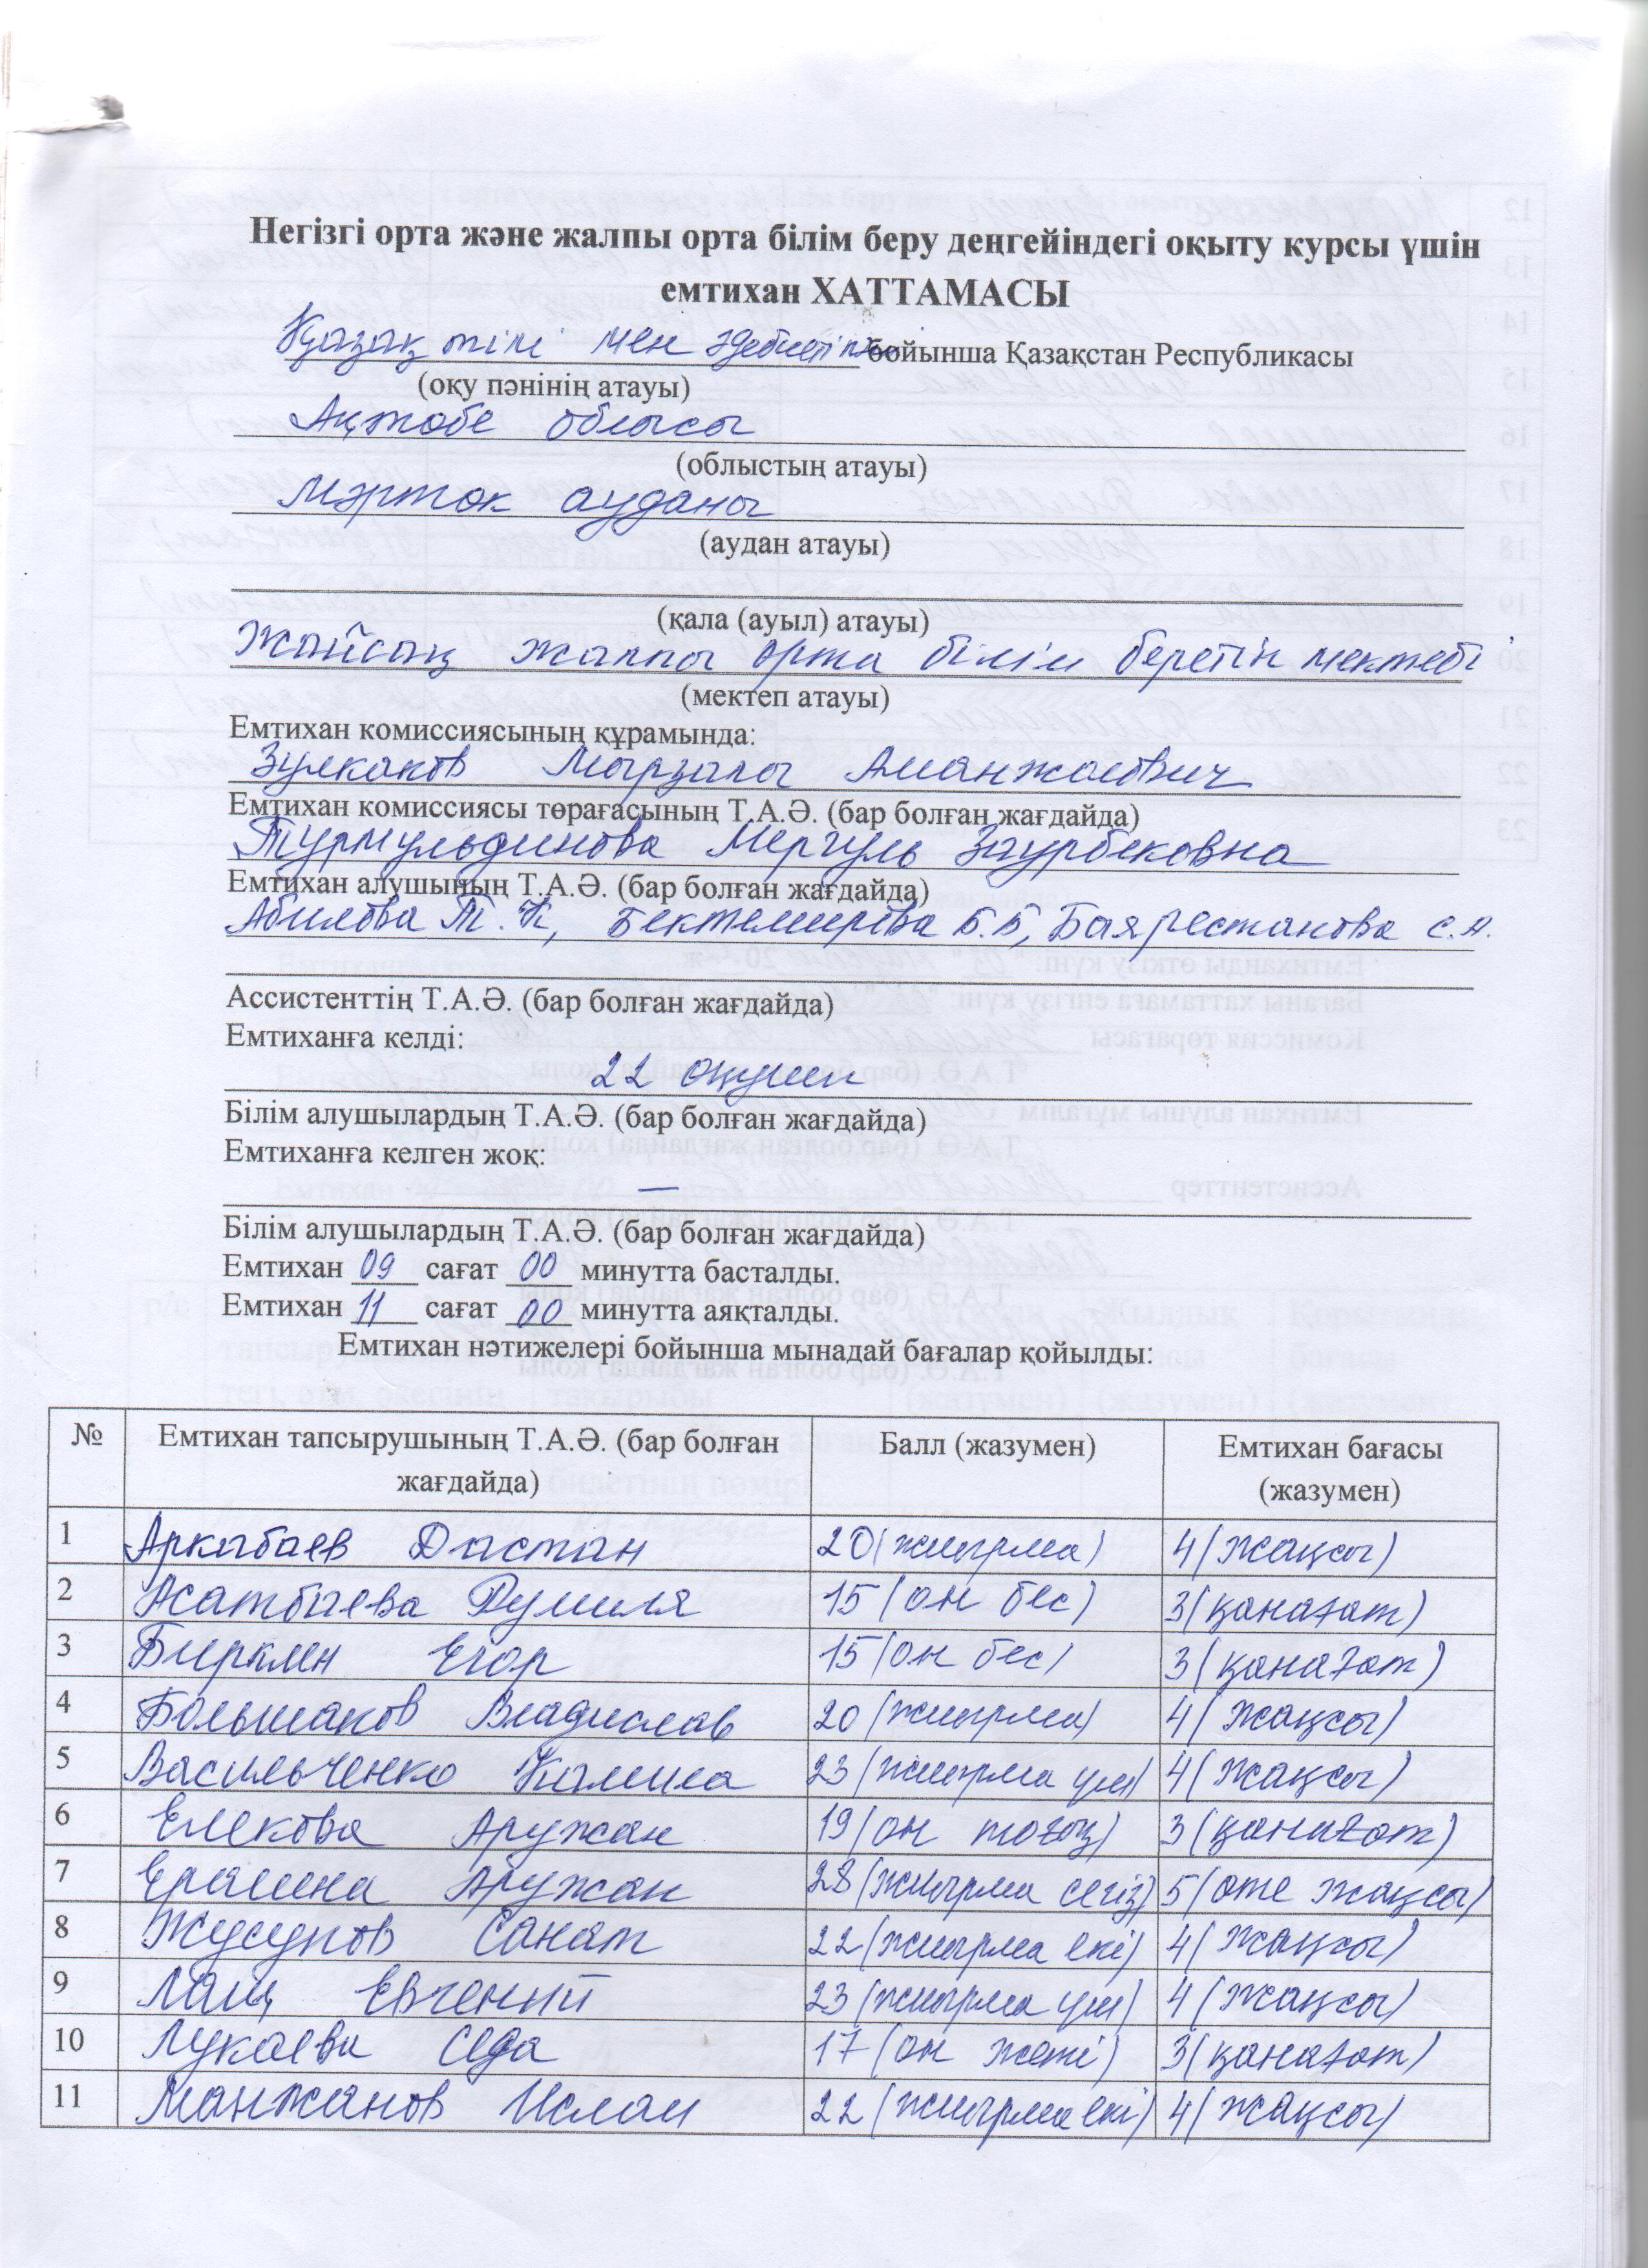 Негізгі орта және жалпы орта білім беру деңгейіндегі оқыту курсы үшін
емтихан ХАТТАМАСЫ
Қазақ тілі мен әдебиеті пәні бойынша Қазақстан Республикасы
(оқу пәнінің атауы)
Ақтөбе облысы
(облыстың атауы)
Мәртөк ауданы
(аудан атауы)
(қала (ауыл) атауы)
Жайсаң жалпы орта білім беретін мектебі
(мектеп атауы)
Емтихан комиссиясының құрамында:
Зулкаков Мырзалы Аманжолович
Емтихан комиссиясы төрағасының Т.А.Ә. (бар болған жағдайда)
Турмульдинова Мергуль Заурбековна
Емтихан алушының Т.А.Ә. (бар болған жағдайда)
Абилова Т.К, Бектемирова Б.Б, Баярестанова С.А.
Ассистенттің Т.А.Ә. (бар болған жағдайда)
Емтиханға келді:
22 оқушы
Білім алушылардың Т.А.Ә. (бар болған жағдайда)
Емтиханға келген жоқ:
—
Білім алушылардың Т.А.Ә. (бар болған жағдайда)
Емтихан 09 сағат 00 минутта басталды.
Емтихан 11 сағат 00 минутта аяқталды.
Емтихан нәтижелері бойынша мынадай бағалар қойылды:
№ Емтихан тапсырушының Т.А.Ә. (бар болған жағдайда) Балл (жазумен) Емтихан бағасы (жазумен)
1 Аркабаев Дастан 20 (жиырма) 4 (жақсы)
2 Жатбаева Румиля 15 (он бес) 3 (қанағат)
3 Бирклен Егор 15 (он бес) 3 (қанағат)
4 Большаков Владислав 20 (жиырма) 4 (жақсы)
5 Васильченко Камила 23 (жиырма үш) 4 (жақсы)
6 Елекова Аружан 19 (он тоғыз) 3 (қанағат)
7 Ерашна Аружан 28 (жиырма сегіз) 5 (өте жақсы)
8 Жусупов Санат 22 (жиырма екі) 4 (жақсы)
9 Лащ Евгений 23 (жиырма үш) 4 (жақсы)
10 Лукаева Седа 17 (он жеті) 3 (қанағат)
11 Манжанов Ислам 22 (жиырма екі) 4 (жақсы)